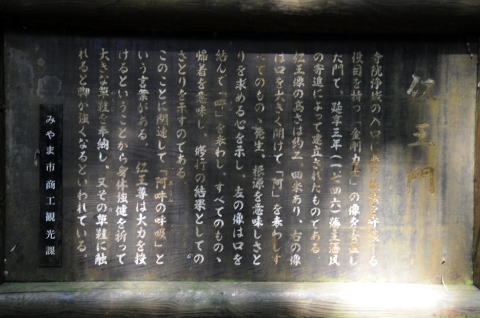 仁王門
寺院浄域の入口に
役目を持つ「金剛力士」の像を
た門で、延享三年（一七四六）
の寄進によって建立されたものである
仁王像の高さは約二・四米あり、右の像
は口を大きく開けて「阿」を表わし
べてのもの、発生、根源を意味しさと
りを求める心を示し、左の像は口を
結んで「吽」を表わし、すべてのもの、
帰着を意味し、修行の結果としての
さとりを示すのである。
このことに関連して「阿吽の呼吸」と
いう言葉がある。仁王尊は大力を授
けるということから身体強健を祈って
大きな草鞋を奉納し、又その草鞋に触
れると脚が強くなるといわれている。
みやま市商工観光課